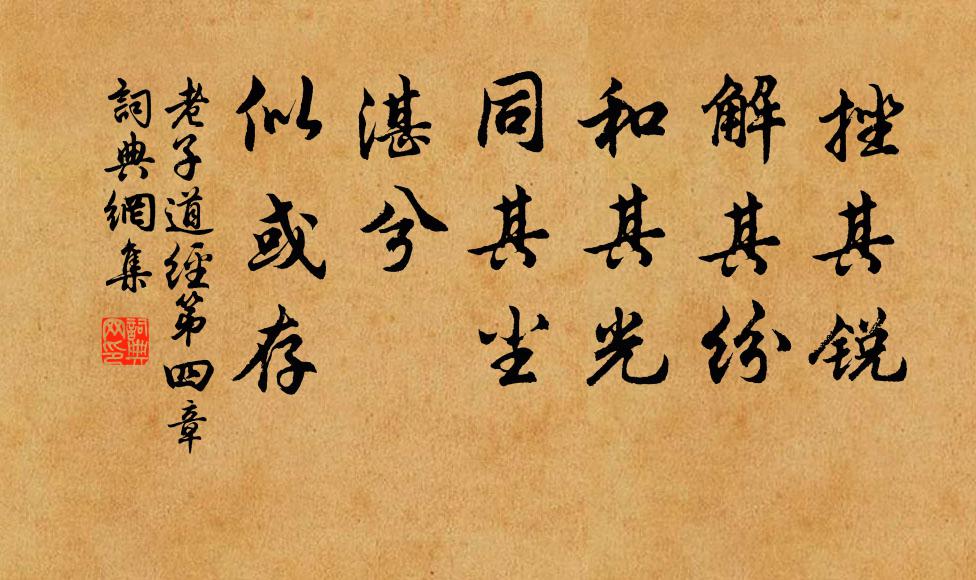 挫其锐
解其纷
和其光
同其尘
湛兮
似或存
老子道經第四章
詞典網集
詞典
双印